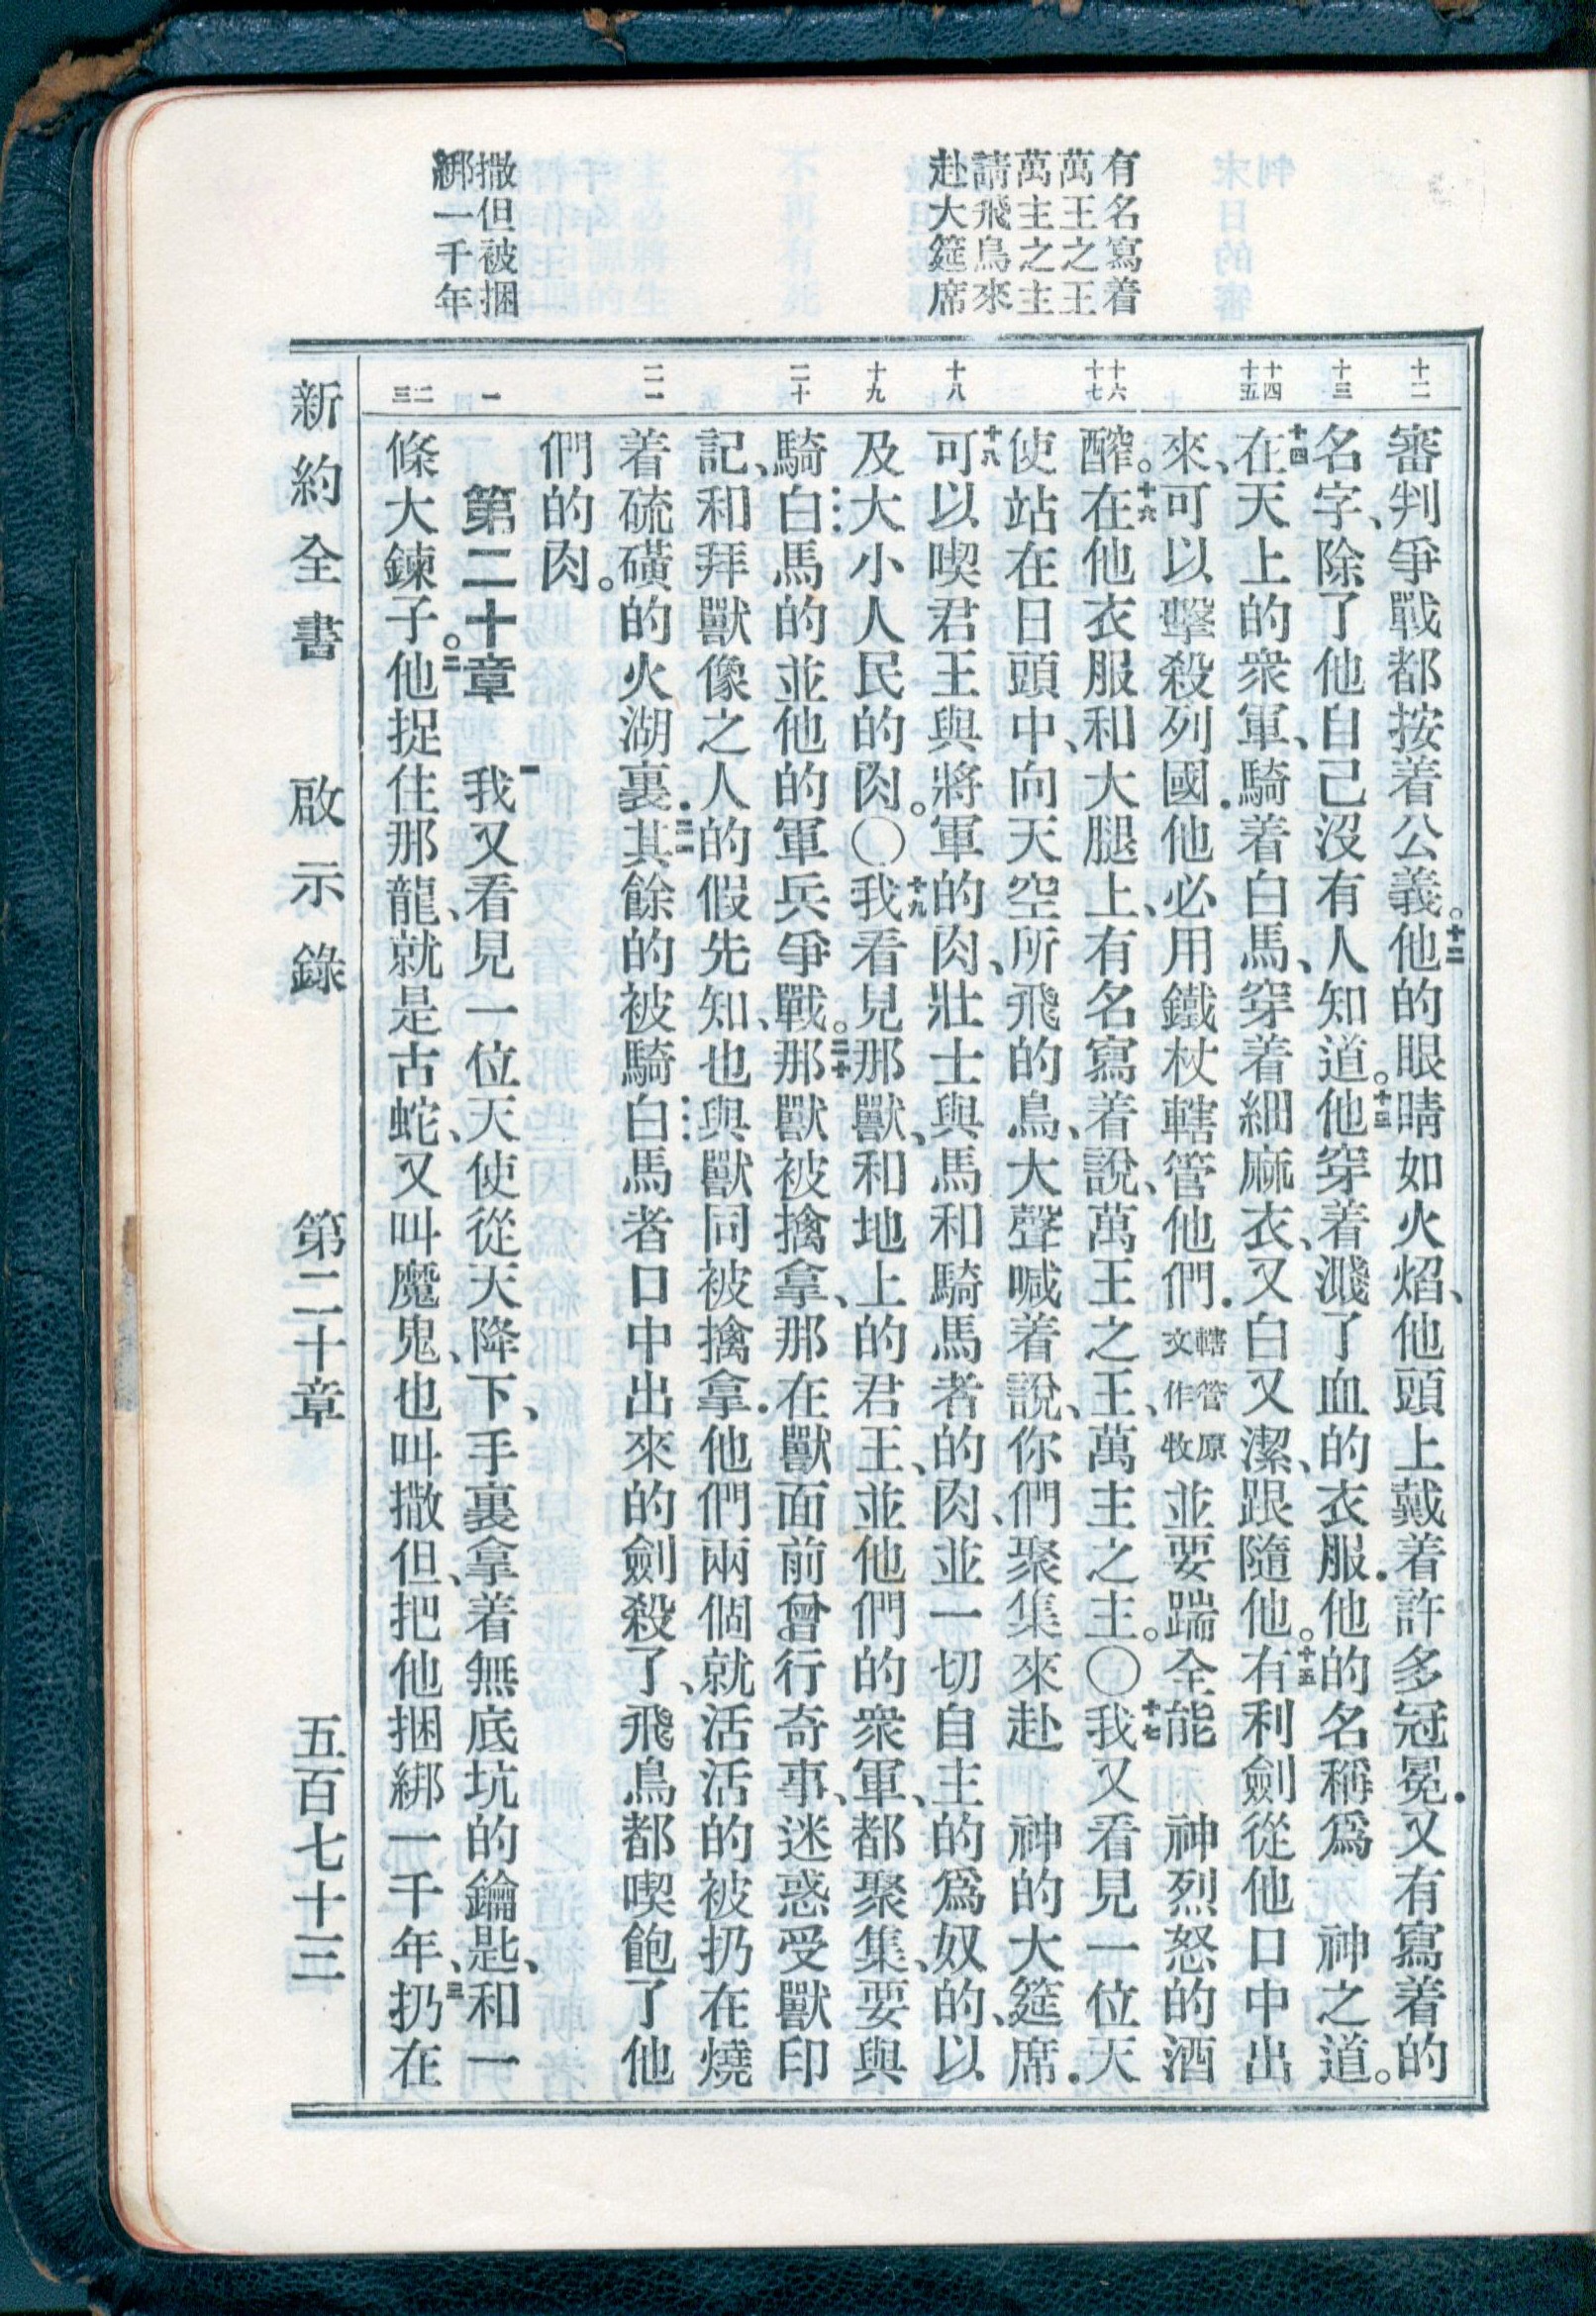 有名寫着
萬王之王
萬主之主
請飛鳥來
赴大筵席
撒但被捆
綁一千年
十二
十三
十四
十五
十六
十七
十八
十九
二十
二一
一
二
三
審判爭戰都按着公義。十二他的眼睛如火焰、他頭上戴着許多冠冕．又有寫着的
名字、除了他自己沒有人知道。十三他穿着濺了血的衣服．他的名稱爲　神之道。
十四在天上的衆軍、騎着白馬、穿着細麻衣、又白又潔、跟隨他。十五有利劍從他口中出
來、可以擊殺列國．他必用鐵杖轄管他們．轄管原文作牧並要踹全能　神烈怒的酒
醡。十六在他衣服和大腿上、有名寫着、說、萬王之王、萬主之主。〇十七我又看見一位天
使站在日頭中、向天空所飛的鳥、大聲喊着說、你們聚集來赴　神的大筵席．
十八可以喫君王與將軍的肉、壯士與馬和騎馬者的肉、並一切自主的爲奴的、以
及大小人民的肉。〇十九我看見那獸、和地上的君王、並他們的衆軍、都聚集、要與
騎白馬的並他的軍兵爭戰。二十那獸被擒拿、那在獸面前曾行奇事、迷惑受獸印
記、和拜獸像之人的假先知、也與獸同被擒拿．他們兩個就活活的被扔在燒
着硫磺的火湖裏．二一其餘的被騎白馬者口中出來的劍殺了、飛鳥都喫飽了他
們的肉。
第二十章　一我又看見一位天使從天降下、手裏拿着無底坑的鑰匙、和一
條大鍊子。二他捉住那龍、就是古蛇、又叫魔鬼、也叫撒但、把他捆綁一千年、三扔在
新約全書　啟示錄　第二十章　五百七十三